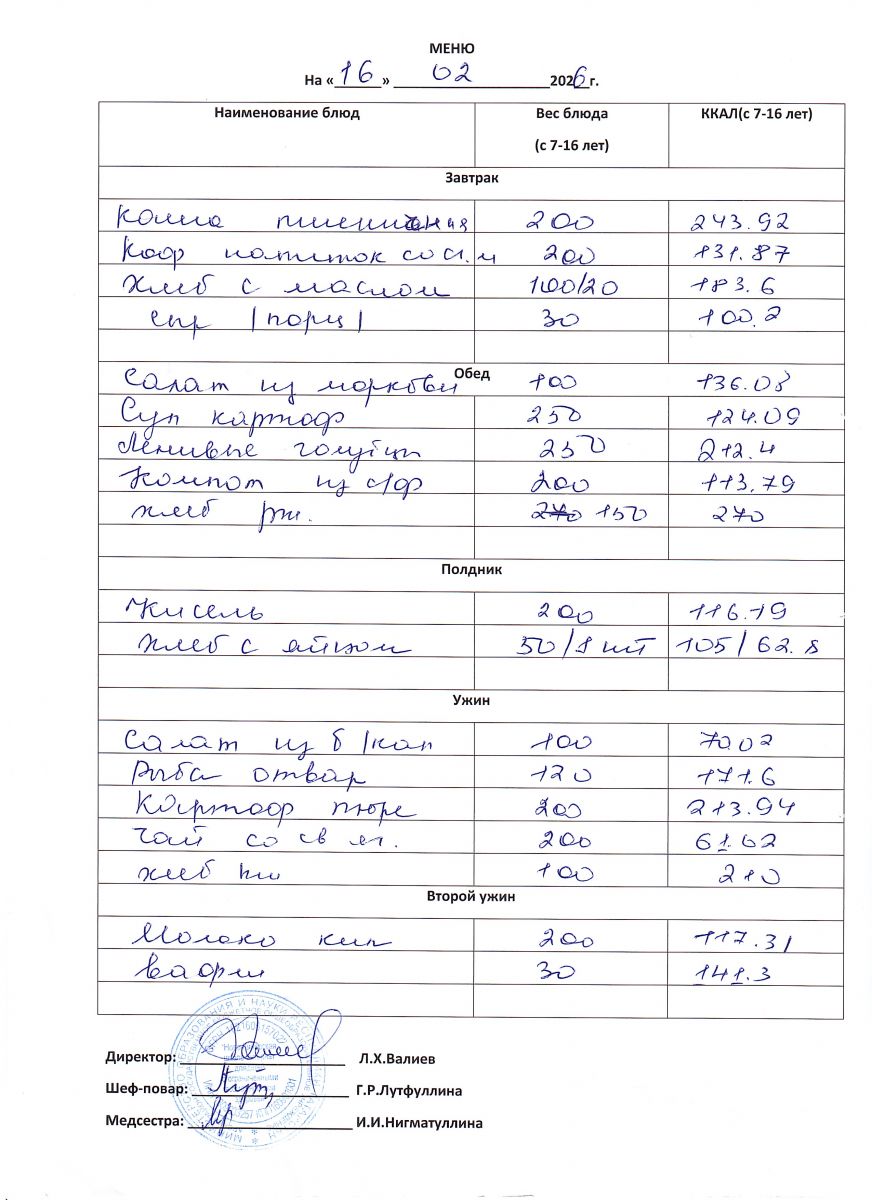 МЕНЮ
На «16» 02 2026 г.
Наименование блюд Вес блюда (с 7-16 лет) ККАЛ(с 7-16 лет)
Завтрак
Каша пшеничная 200 243.92
Коф напиток со сг.м 200 131.87
Хлеб с маслом 100/20 183.6
сыр /порц/ 30 100.2
Обед
Салат из моркови 100 136.08
Суп картоф 250 124.09
Ленивые голубцы 250 212.4
Компот из с/ф 200 113.79
хлеб рж. 270 150 270
Полдник
Кисель 200 116.19
хлеб с яйцом 50/1 шт 105/62.8
Ужин
Салат из б/кап 100 70.02
Рыба отвар 120 171.6
Картоф пюре 200 213.94
Чай со 200 61.62
хлеб пш 100 210
Второй ужин
Молоко кип 200 117.31
вафли 30 141.3
Директор: Л.Х.Валиев
Шеф-повар: Г.Р.Лутфуллина
Медсестра: И.И.Нигматуллина